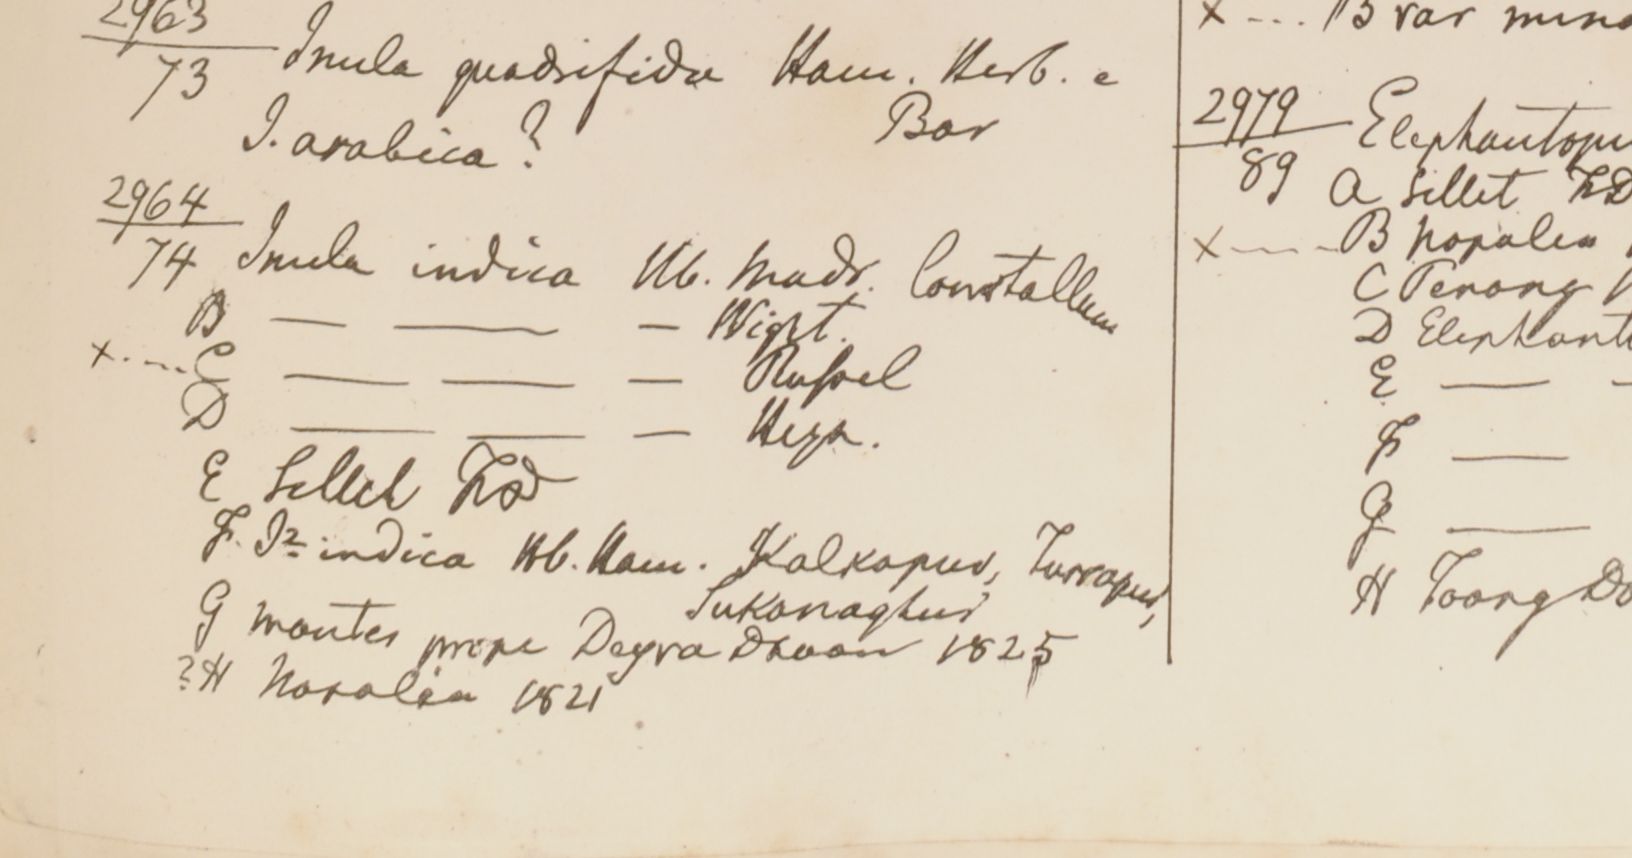 2963
73 Inula quadrifida Ham. Herb. e
Bar
I. arabica?
2964
74 Inula indica Hb. Madr.
B — — — Wight.
x----C — — — Russel
D — — — Heyn.
E Sillet FD
F. I? indica Hb. Ham. Kalkapur, Turrapur,
Sukanaghur
G montes prope Deyra Dhoon 1825
?H Napalia 1821
x --- B var mino
2979
89 Elephantopu
A Sillet FD
x----B Napalia
C Penang
D Elephant
E — —
F —
G —
H Toong Do